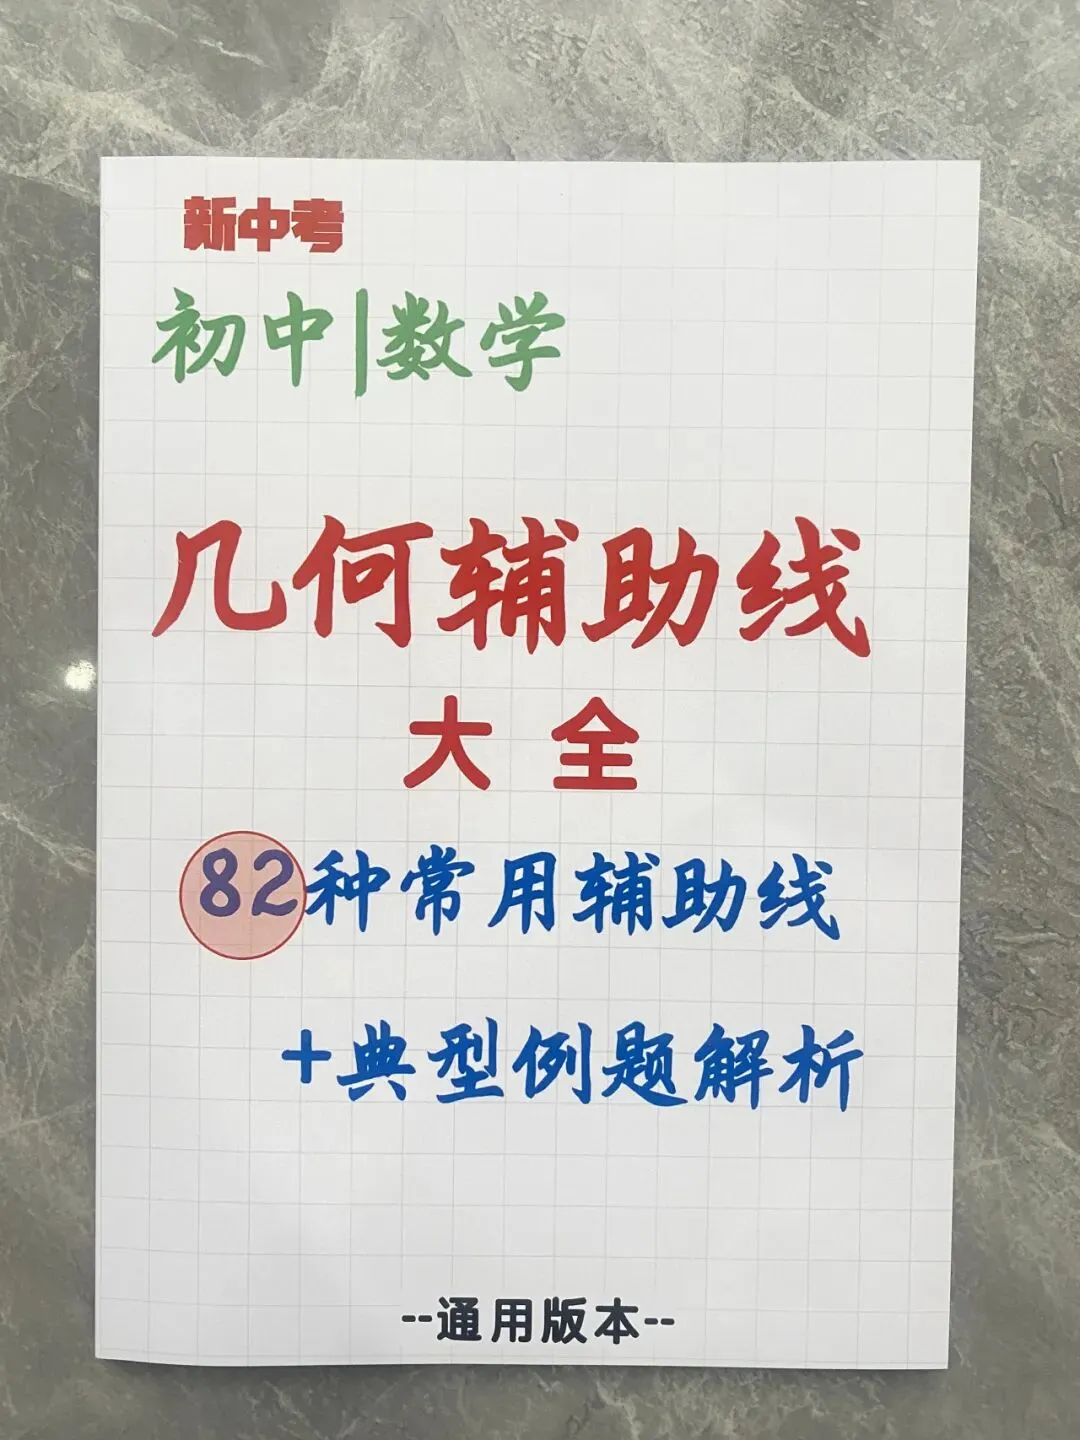 新中考
初中|数学
几何辅助线
大全
82种常用辅助线
+典型例题解析
--通用版本--